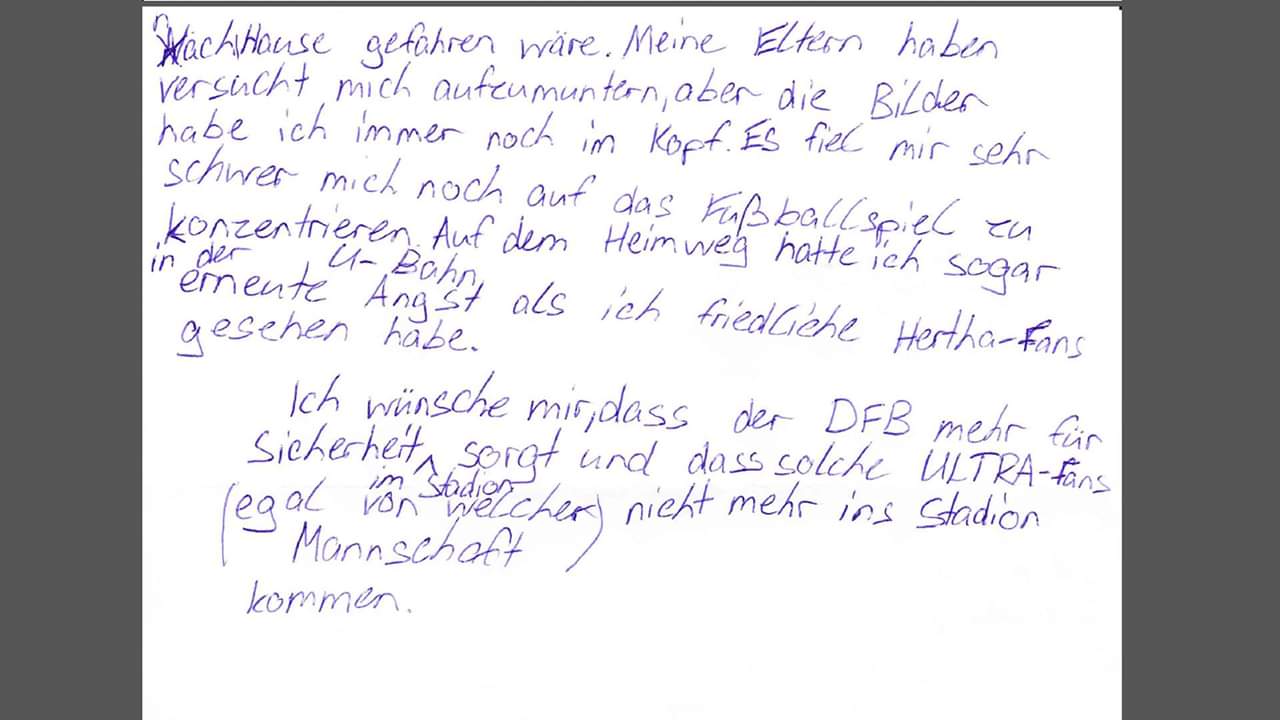 nach Hause gefahren wäre. Meine Eltern haben
versucht mich aufzumuntern, aber die Bilder
habe ich immer noch im Kopf. Es fiel mir sehr
schwer mich noch auf das Fußballspiel zu
konzentrieren. Auf dem Heimweg hatte ich sogar
in der U-Bahn
erneute Angst als ich friedliche Hertha-Fans
gesehen habe.
Ich wünsche mir, dass der DFB mehr für
Sicherheit sorgt und dass solche ULTRA-Fans
im Stadion
(egal von welcher) nicht mehr ins Stadion
Mannschaft
kommen.